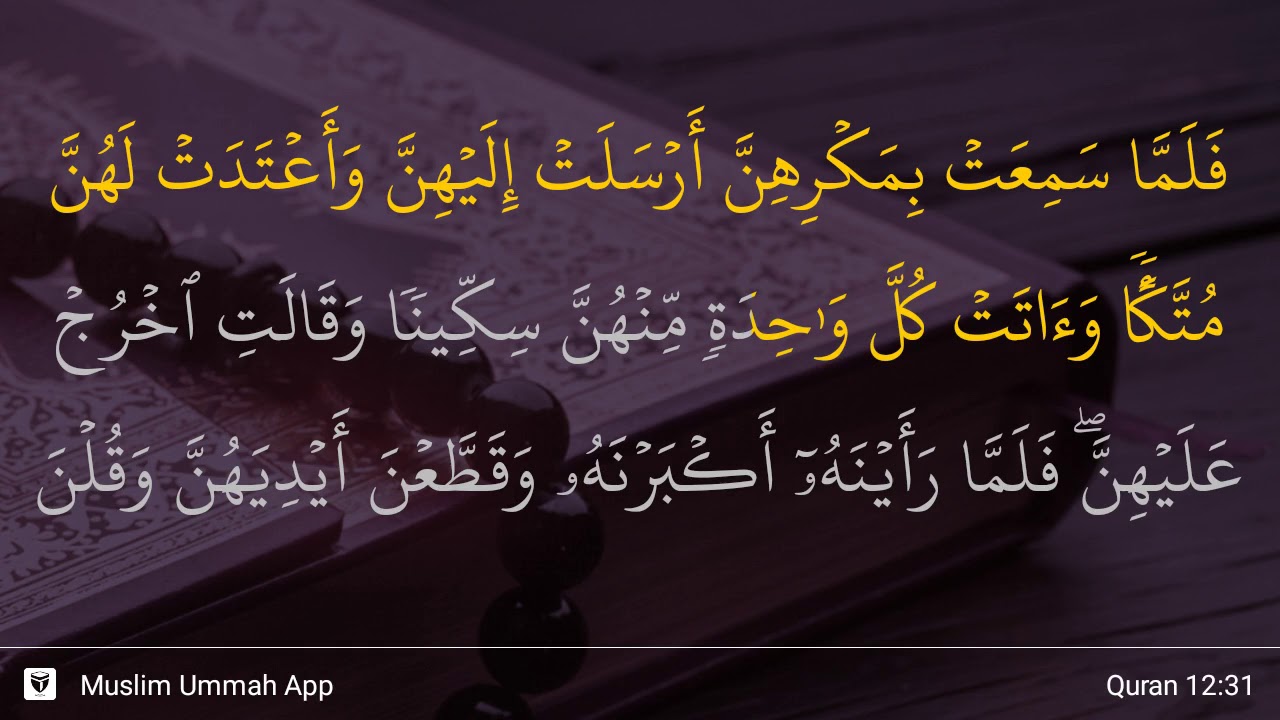 فَلَمَّا سَمِعَتْ بِمَكْرِهِنَّ أَرْسَلَتْ إِلَيْهِنَّ وَأَعْتَدَتْ لَهُنَّ
مُتَّكَـًٔا وَءَاتَتْ كُلَّ وَٰحِدَةٍ مِّنْهُنَّ سِكِّينًا وَقَالَتِ ٱخْرُجْ
عَلَيْهِنَّ ۖ فَلَمَّا رَأَيْنَهُۥٓ أَكْبَرْنَهُۥ وَقَطَّعْنَ أَيْدِيَهُنَّ وَقُلْنَ
Muslim Ummah App
Quran 12:31